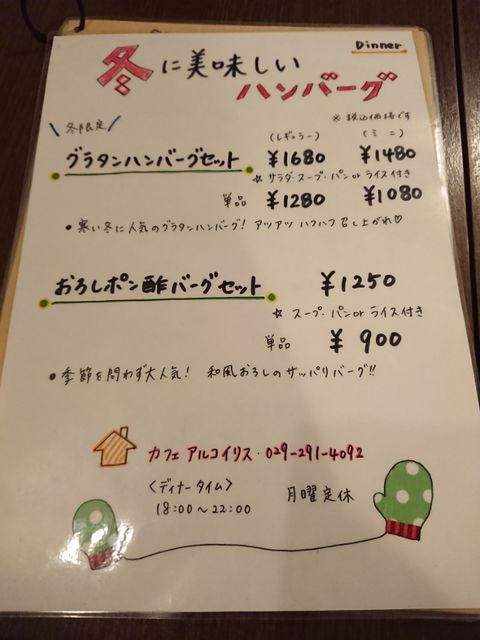 Dinner
冬に美味しい
ハンバーグ
※税込価格です
冬限定
(レギュラー) (ミニ)
グラタンハンバーグセット ¥1680 ¥1480
☆サラダ・スープ・パンorライス付き
単品 ¥1280 ¥1080
●寒い冬に人気のグラタンハンバーグ! アツアツ ハフハフ 召し上がれ♡
おろしポン酢バーグセット ¥1250
☆スープ・パンorライス付き
単品 ¥900
●季節を問わず大人気! 和風おろしのサッパリバーグ!!
カフェ アルコイリス・029-291-4092
〈ディナータイム〉 月曜定休
18:00〜22:00